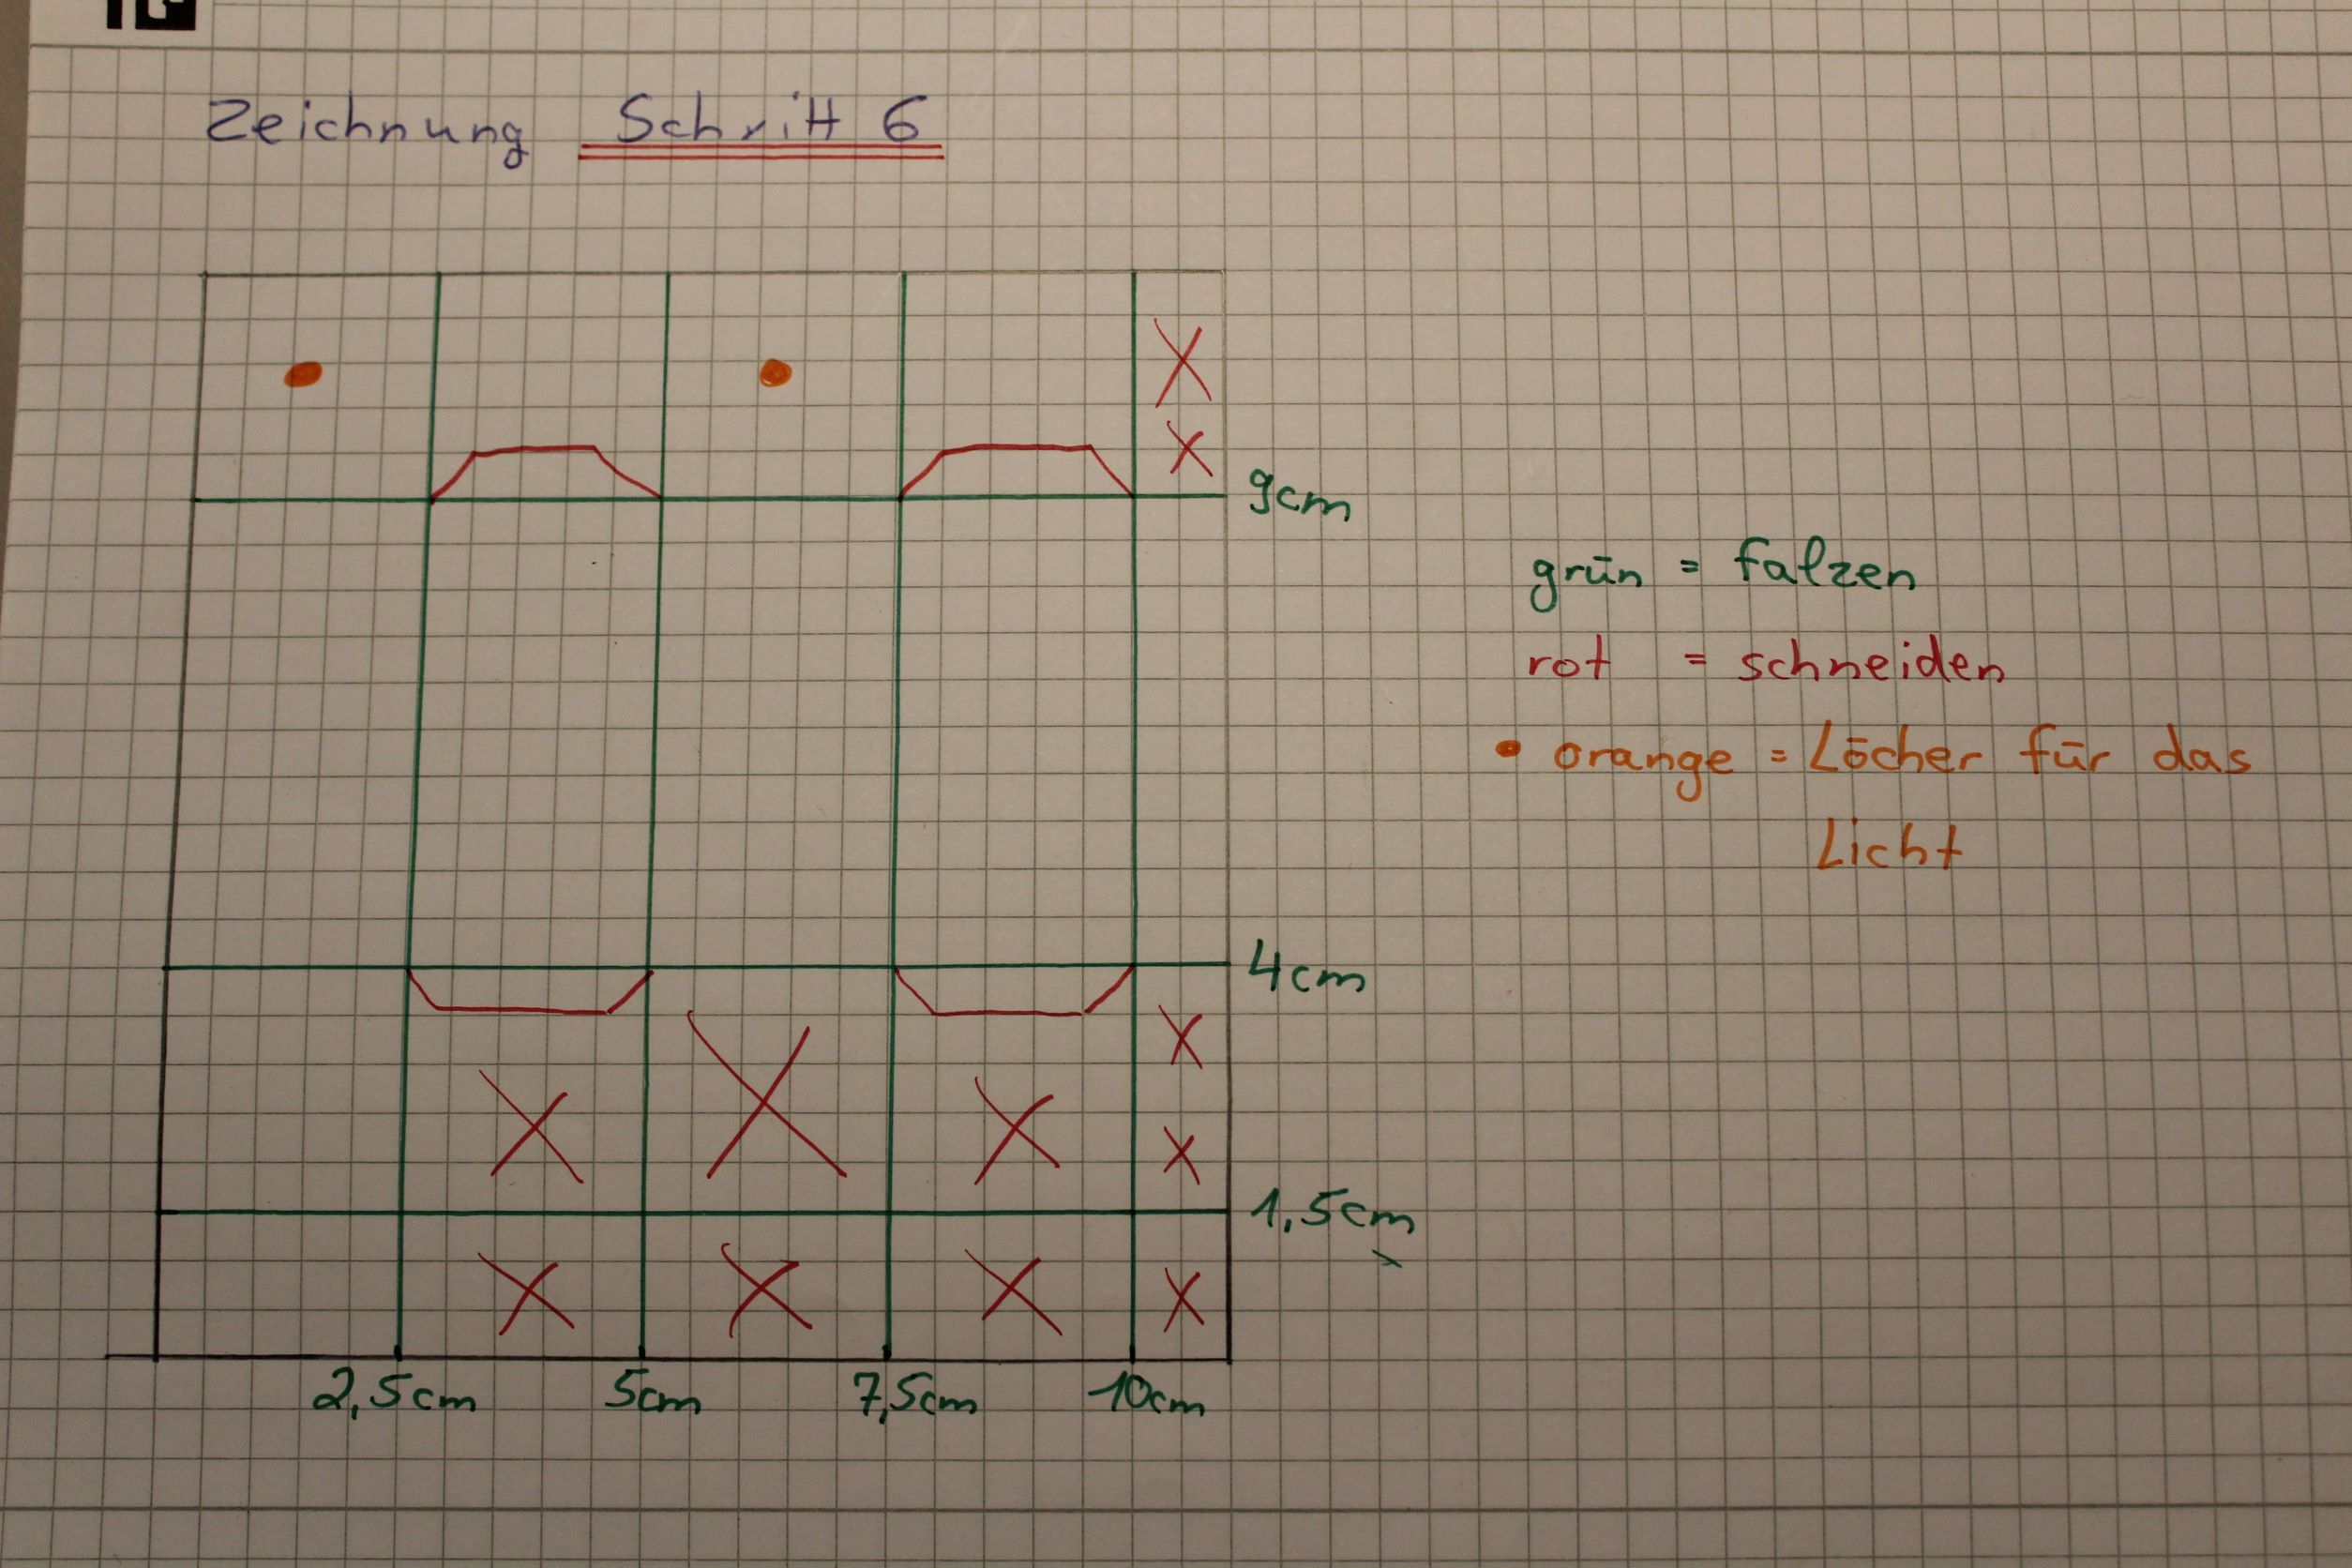 Zeichnung Schritt 6
9cm
grün = falzen
rot = schneiden
• orange = Löcher für das
Licht
4cm
1,5cm
2,5cm 5cm 7,5cm 10cm